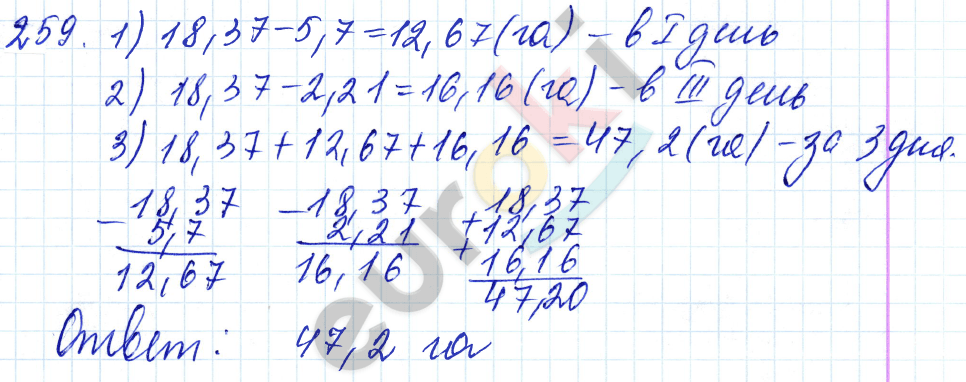 259. 1) 18,37-5,7=12,67(га) - в I день
2) 18,37-2,21=16,16(га) - в III день
3) 18,37+12,67+16,16=47,2(га) - за 3 дня.
-18,37 -18,37 18,37
5,7 2,21 +12,67
12,67 16,16 +16,16
47,20
Ответ: 47,2 га
euroki